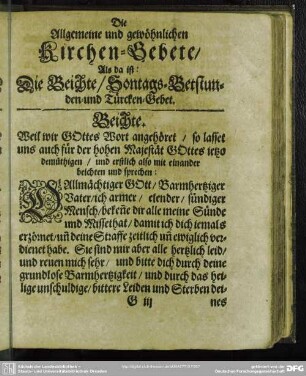 Die
Allgemeine und gewöhnlichen
Kirchen-Gebete/
Als da ist:
Die Beichte/ Sontags-Betstun-
den- und Türcken-Gebet.
Beichte.
Weil wir GOttes Wort angehöret / so lasset
uns auch für der hohen Majestät GOttes ietzo
demüthigen / und erstlich also mit einander
beichten und sprechen:
O Allmächtiger GOtt/ Barmhertziger
Vater/ ich armer/ elender/ sündiger
Mensch/ bekeñe dir alle meine Sünde
und Missethat/ damit ich dich iemals
erzörnet/ uñ deine Straffe zeitlich uñ ewiglich ver-
dienet habe. Sie sind mir aber alle hertzlich leid/
und reuen mich sehr/ und bitte dich durch deine
grundlose Barmhertzigkeit/ und durch das hei-
lige unschuldige/ bittere Leiden und Sterben dei-
G iij
nes